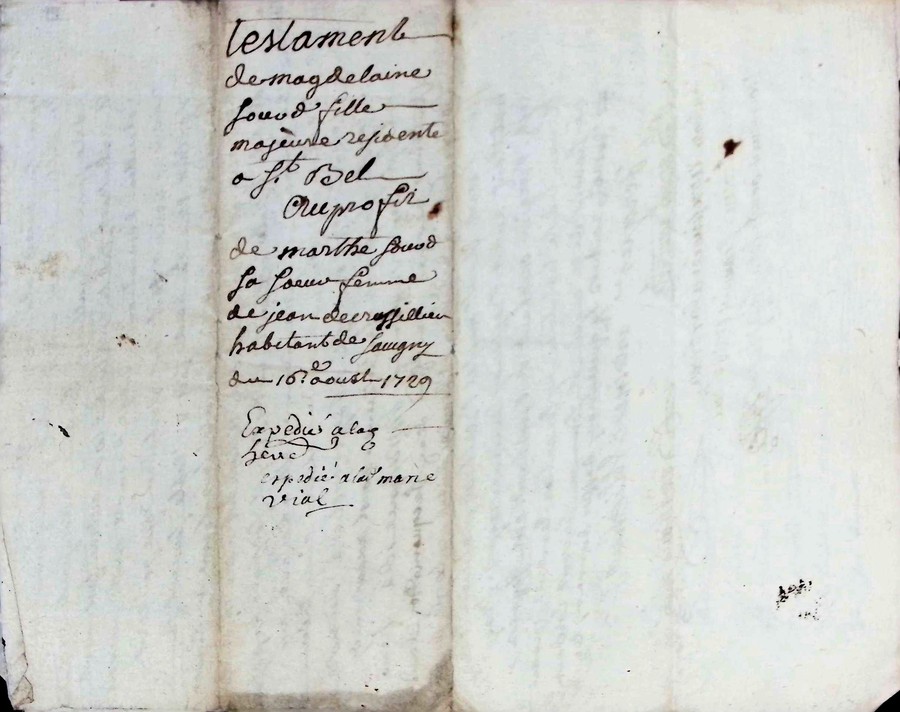 testament
de magdelaine
souvd fille
majeure residente
a St. Bel
Au profit
de marthe souvd
sa soeur femme
de jean decrussillieu
habitant de savigny
du 16e. aoust 1729
Expedié a lad
here
expedié a lad marie
vial